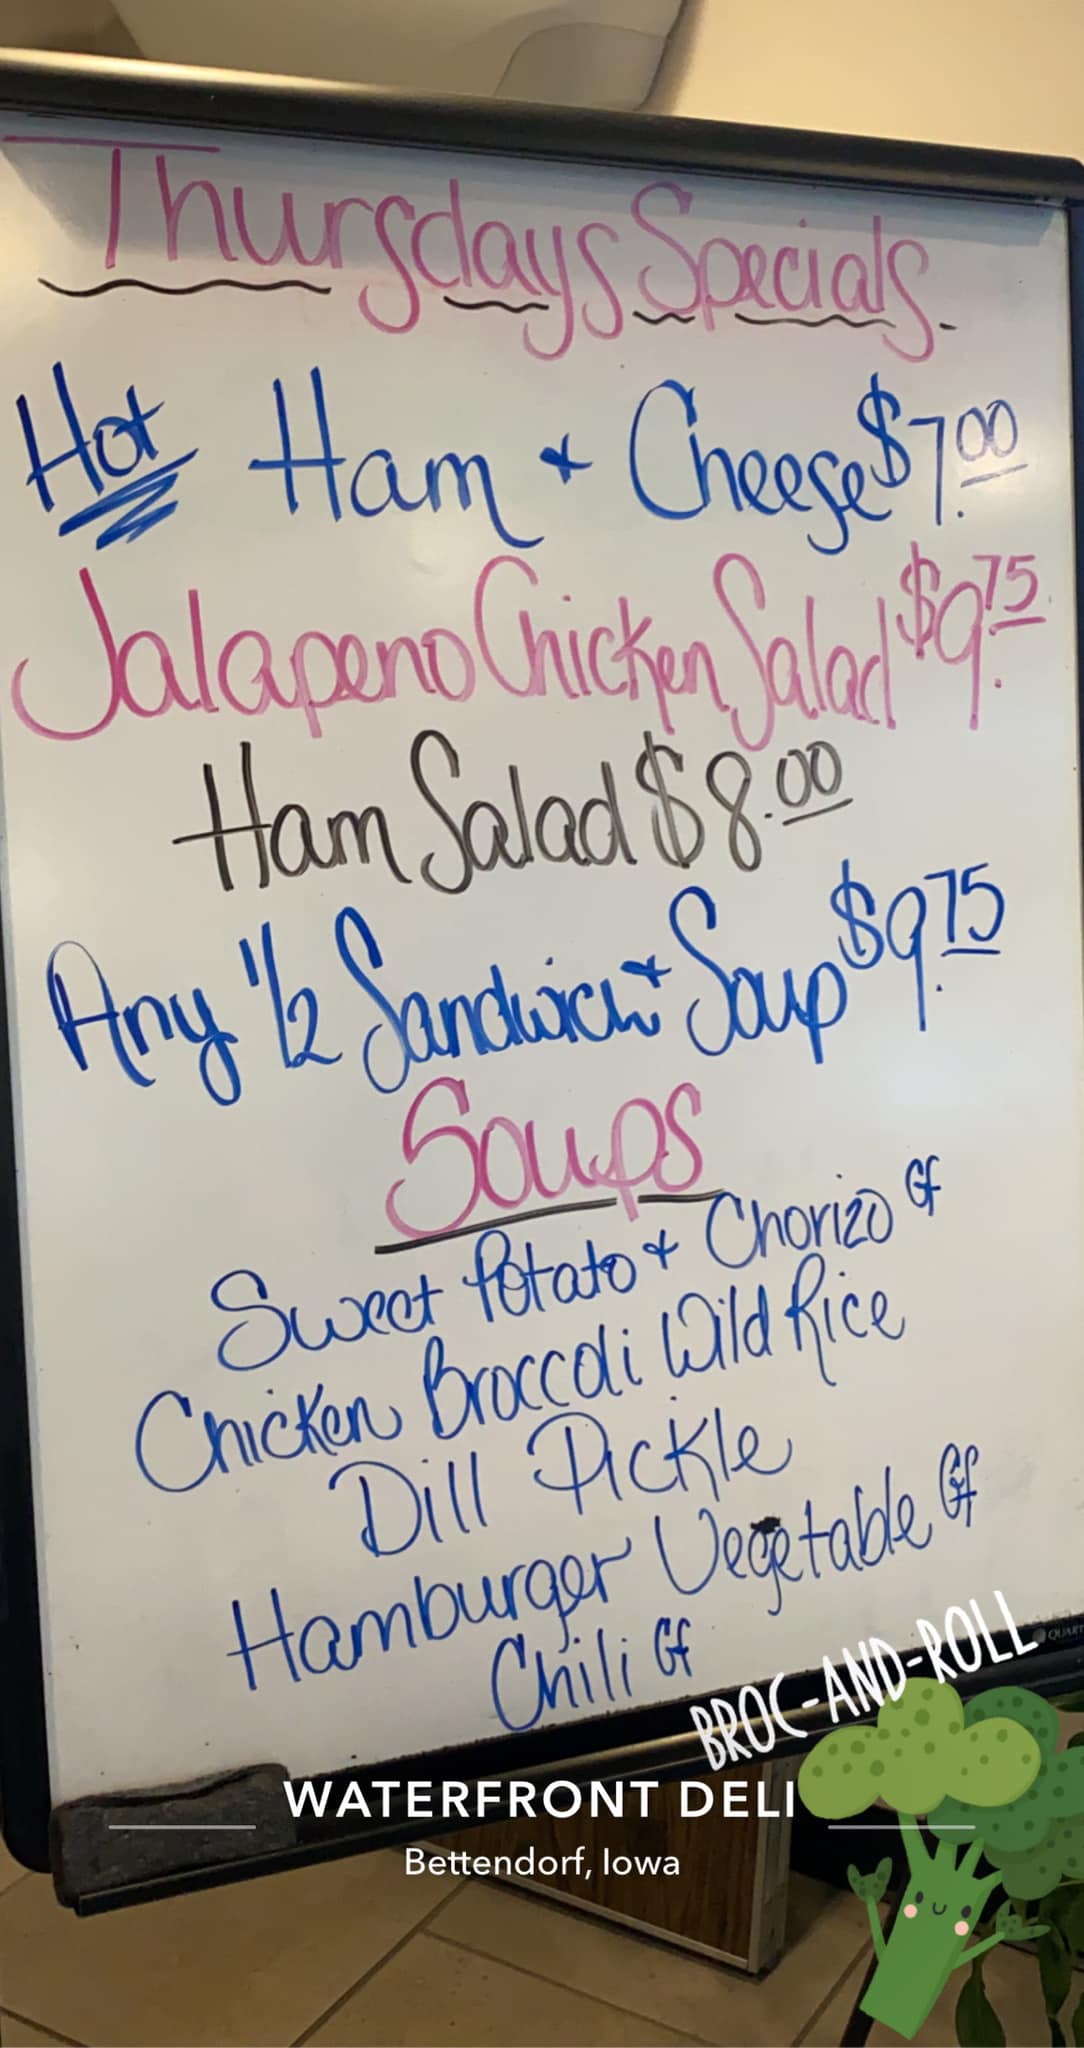 Thursdays Specials
Hot Ham + Cheese $7.00
Jalapeno Chicken Salad $9.75
Ham Salad $8.00
Any 1/2 Sandwich + Soup $9.75
Soups
Sweet Potato + Chorizo Gf
Chicken Broccoli Wild Rice
Dill Pickle
Hamburger Vegetable Gf
Chili Gf
BROC-AND-ROLL
WATERFRONT DELI
Bettendorf, Iowa